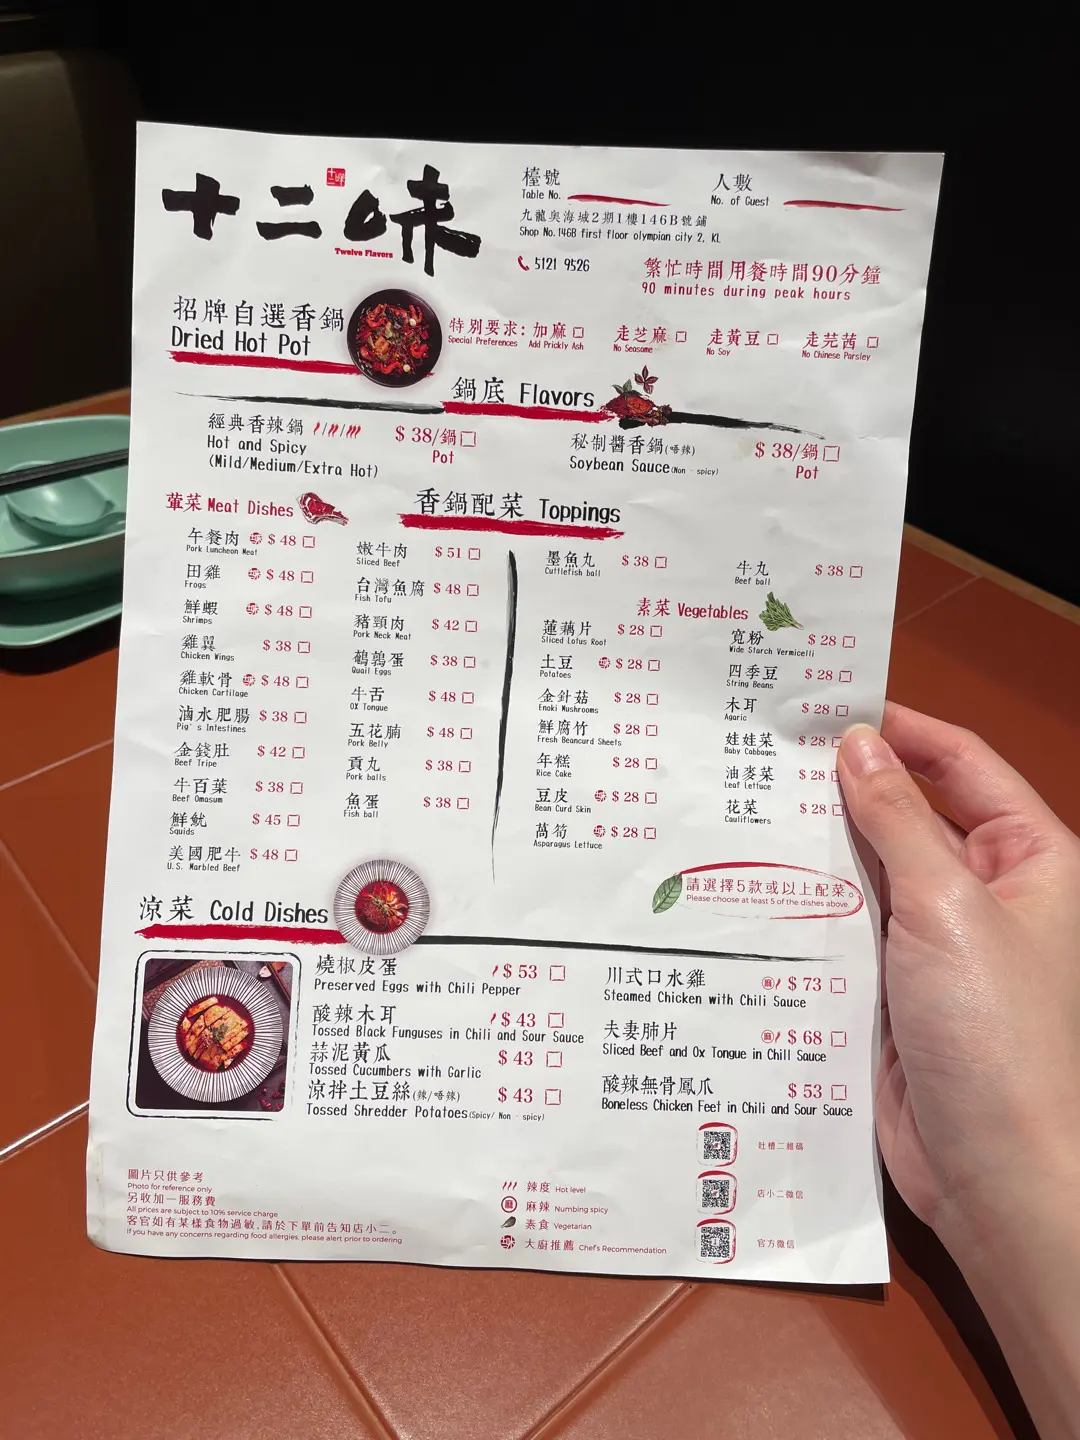 十二味
十二味
Twelve Flavors
檯號
Table No.
人數
No. of Guest
九龍奧海城2期1樓146B號鋪
Shop No.146B first floor olympian city 2, KL
5121 9526
繁忙時間用餐時間90分鐘
90 minutes during peak hours
招牌自選香鍋
Dried Hot Pot
特別要求: 加麻 □ 走芝麻 □ 走黃豆 □ 走芫茜 □
Special Preferences Add Prickly Ash No Seasame No Soy No Chinese Parsley
鍋底 Flavors
經典香辣鍋 $ 38/鍋 □
Hot and Spicy Pot
(Mild/Medium/Extra Hot)
秘制醬香鍋(唔辣) $ 38/鍋 □
Soybean Sauce(Non - spicy) Pot
香鍋配菜 Toppings
葷菜 Meat Dishes
午餐肉 $ 48 □
Pork Luncheon Meat
田雞 $ 48 □
Frogs
鮮蝦 $ 48 □
Shrimps
雞翼 $ 38 □
Chicken Wings
雞軟骨 $ 48 □
Chicken Cartilage
滷水肥腸 $ 38 □
Pig's Intestines
金錢肚 $ 42 □
Beef Tripe
牛百葉 $ 38 □
Beef Omasum
鮮魷 $ 45 □
Squids
美國肥牛 $ 48 □
U.S. Marbled Beef
嫩牛肉 $ 51 □
Sliced Beef
台灣魚腐 $ 48 □
Fish Tofu
豬頸肉 $ 42 □
Pork Neck Meat
鵪鶉蛋 $ 38 □
Quail Eggs
牛舌 $ 48 □
OX Tongue
五花腩 $ 48 □
Pork Belly
貢丸 $ 38 □
Pork balls
魚蛋 $ 38 □
Fish ball
墨魚丸 $ 38 □
Cuttlefish ball
牛丸 $ 38 □
Beef ball
素菜 Vegetables
蓮藕片 $ 28 □
Sliced Lotus Root
土豆 $ 28 □
Potatoes
金針菇 $ 28 □
Enoki Mushrooms
鮮腐竹 $ 28 □
Fresh Beancurd Sheets
年糕 $ 28 □
Rice Cake
豆皮 $ 28 □
Bean Curd Skin
萵筍 $ 28 □
Asparagus Lettuce
寬粉 $ 28 □
Wide Starch Vermicelli
四季豆 $ 28 □
String Beans
木耳 $ 28 □
Agaric
娃娃菜 $ 28 □
Baby Cabbages
油麥菜 $ 28 □
Leaf Lettuce
花菜 $ 28 □
Cauliflowers
請選擇5款或以上配菜。
Please choose at least 5 of the dishes above.
涼菜 Cold Dishes
燒椒皮蛋 $ 53 □
Preserved Eggs with Chili Pepper
酸辣木耳 $ 43 □
Tossed Black Funguses in Chili and Sour Sauce
蒜泥黃瓜 $ 43 □
Tossed Cucumbers with Garlic
涼拌土豆絲(辣/唔辣) $ 43 □
Tossed Shredder Potatoes(Spicy/ Non - spicy)
川式口水雞 麻 $ 73 □
Steamed Chicken with Chili Sauce
夫妻肺片 麻 $ 68 □
Sliced Beef and Ox Tongue in Chill Sauce
酸辣無骨鳳爪 $ 53 □
Boneless Chicken Feet in Chili and Sour Sauce
圖片只供參考
Photo for reference only
另收加一服務費
All prices are subject to 10% service charge
客官如有某樣食物過敏,請於下單前告知店小二。
If you have any concerns regarding food allergies, please alert prior to ordering
辣度 Hot level
麻 麻辣 Numbing spicy
素食 Vegetarian
大廚推薦 Chef's Recommendation
吐槽二維碼
店小二微信
官方微信